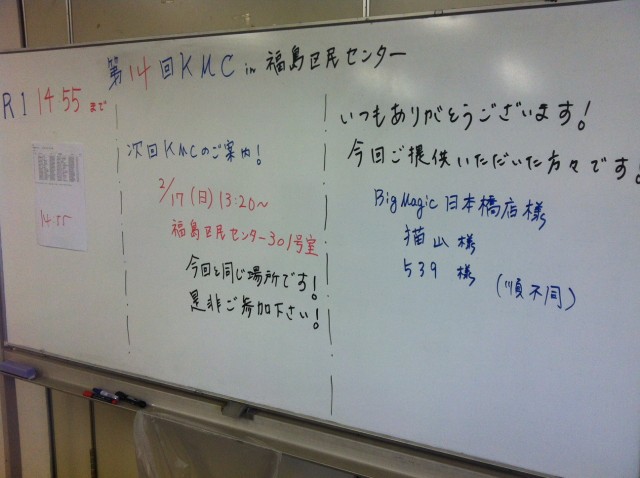 第14回KMC in 福島区民センター
R1 14:55 まで
14:55
次回KMCのご案内!
2/17(日)13:20~
福島区民センター301号室
今回と同じ場所です!
是非ご参加下さい!
いつもありがとうございます!
今回ご提供いただいた方々です!
BigMagic日本橋店様
猫山様
539様
(順不同)